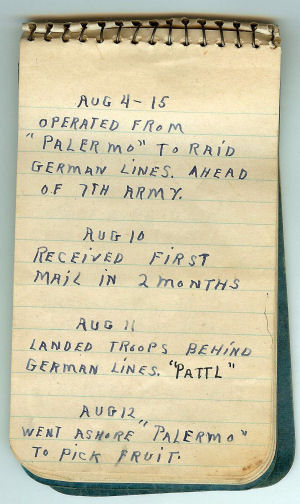 AUG 4-15
OPERATED FROM
"PALERMO" TO RAID
GERMAN LINES. AHEAD
OF 7TH ARMY.
AUG 10
RECEIVED FIRST
MAIL IN 2 MONTHS
AUG 11
LANDED TROOPS BEHIND
GERMAN LINES. "PATTL"
AUG 12
WENT ASHORE "PALERMO"
TO PICK FRUIT.